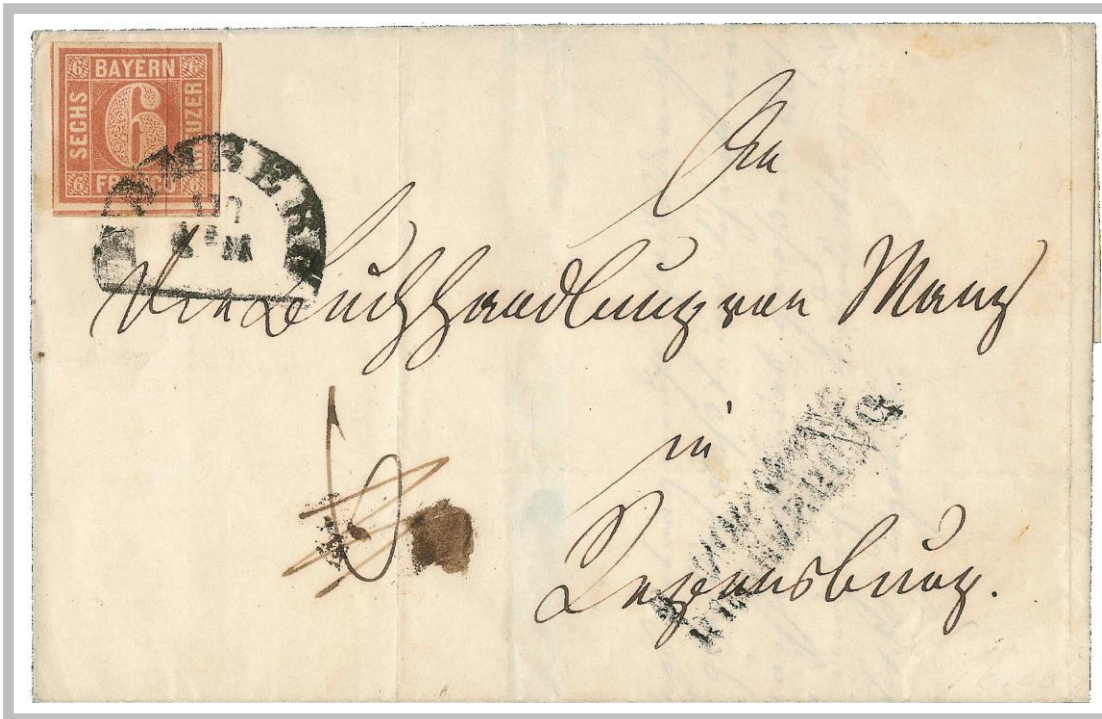 6 BAYERN 6
SECHS 6 KREUZER
6 FRANCO 6
BAMBERG
An
die Buchhandlung von Manz
in
Regensburg.
6